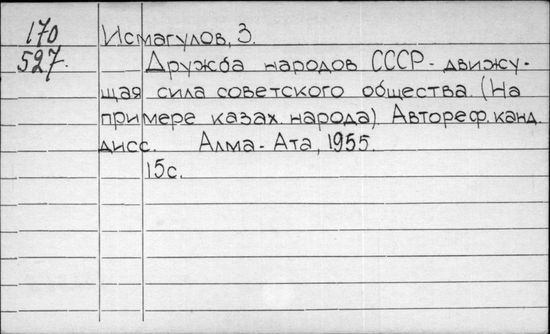 170 Исмагулов, З.
527. Дружба народов СССР - движу-
щая сила советского общества. (На
примере казах. народа). Автореф. канд.
дисс. Алма-Ата, 1955.
15с.